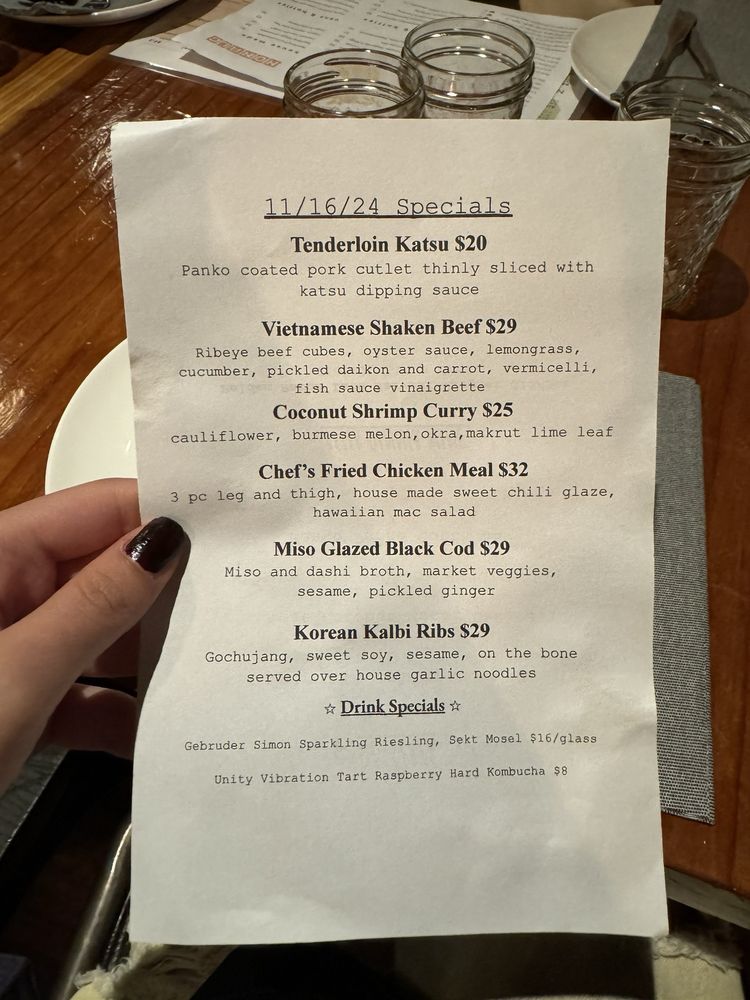 11/16/24 Specials
Tenderloin Katsu $20
Panko coated pork cutlet thinly sliced with
katsu dipping sauce
Vietnamese Shaken Beef $29
Ribeye beef cubes, oyster sauce, lemongrass,
cucumber, pickled daikon and carrot, vermicelli,
fish sauce vinaigrette
Coconut Shrimp Curry $25
cauliflower, burmese melon,okra,makrut lime leaf
Chef's Fried Chicken Meal $32
3 pc leg and thigh, house made sweet chili glaze,
hawaiian mac salad
Miso Glazed Black Cod $29
Miso and dashi broth, market veggies,
sesame, pickled ginger
Korean Kalbi Ribs $29
Gochujang, sweet soy, sesame, on the bone
served over house garlic noodles
☆ Drink Specials ☆
Gebruder Simon Sparkling Riesling, Sekt Mosel $16/glass
Unity Vibration Tart Raspberry Hard Kombucha $8